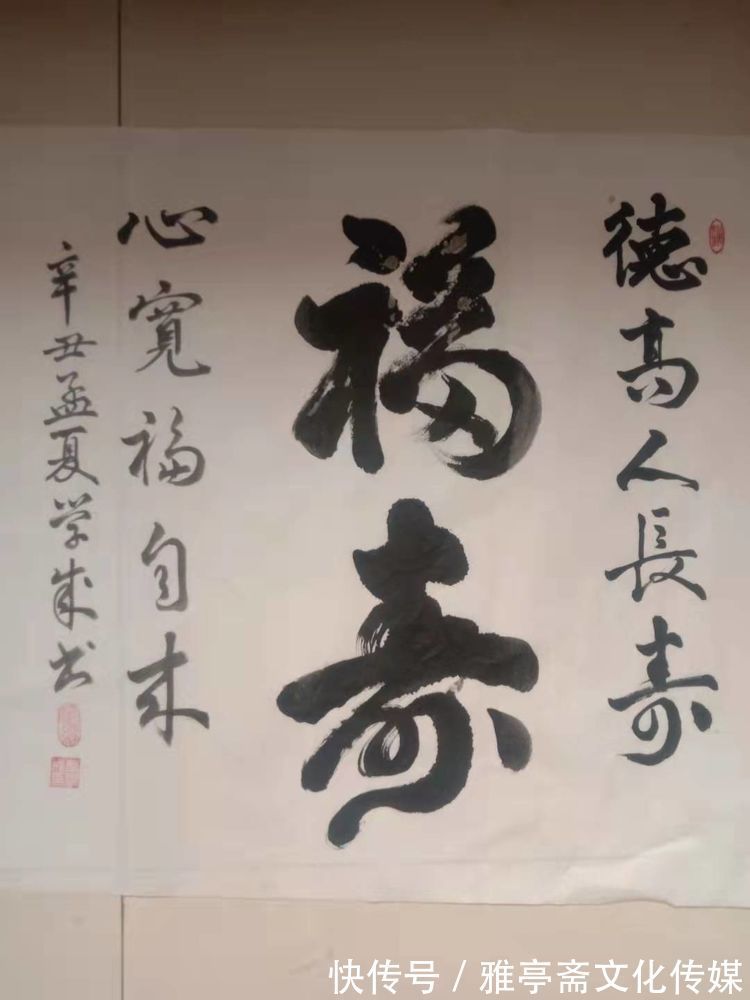 德高人長寿
福寿
心寬福自来
辛丑孟夏学成书
快传号/雅亭斋文化传媒